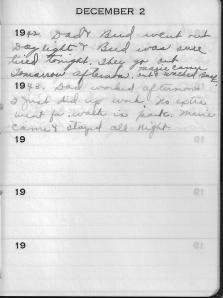 DECEMBER 2
1942. Dad & Bud went out
Day light & Bud was sure
tired tonight. They go out
Tomorrow afternoon.
1943. Dad worked afternoons
I just did up work. No extra
went for walk in park.
came & stayed all night
19
19
19